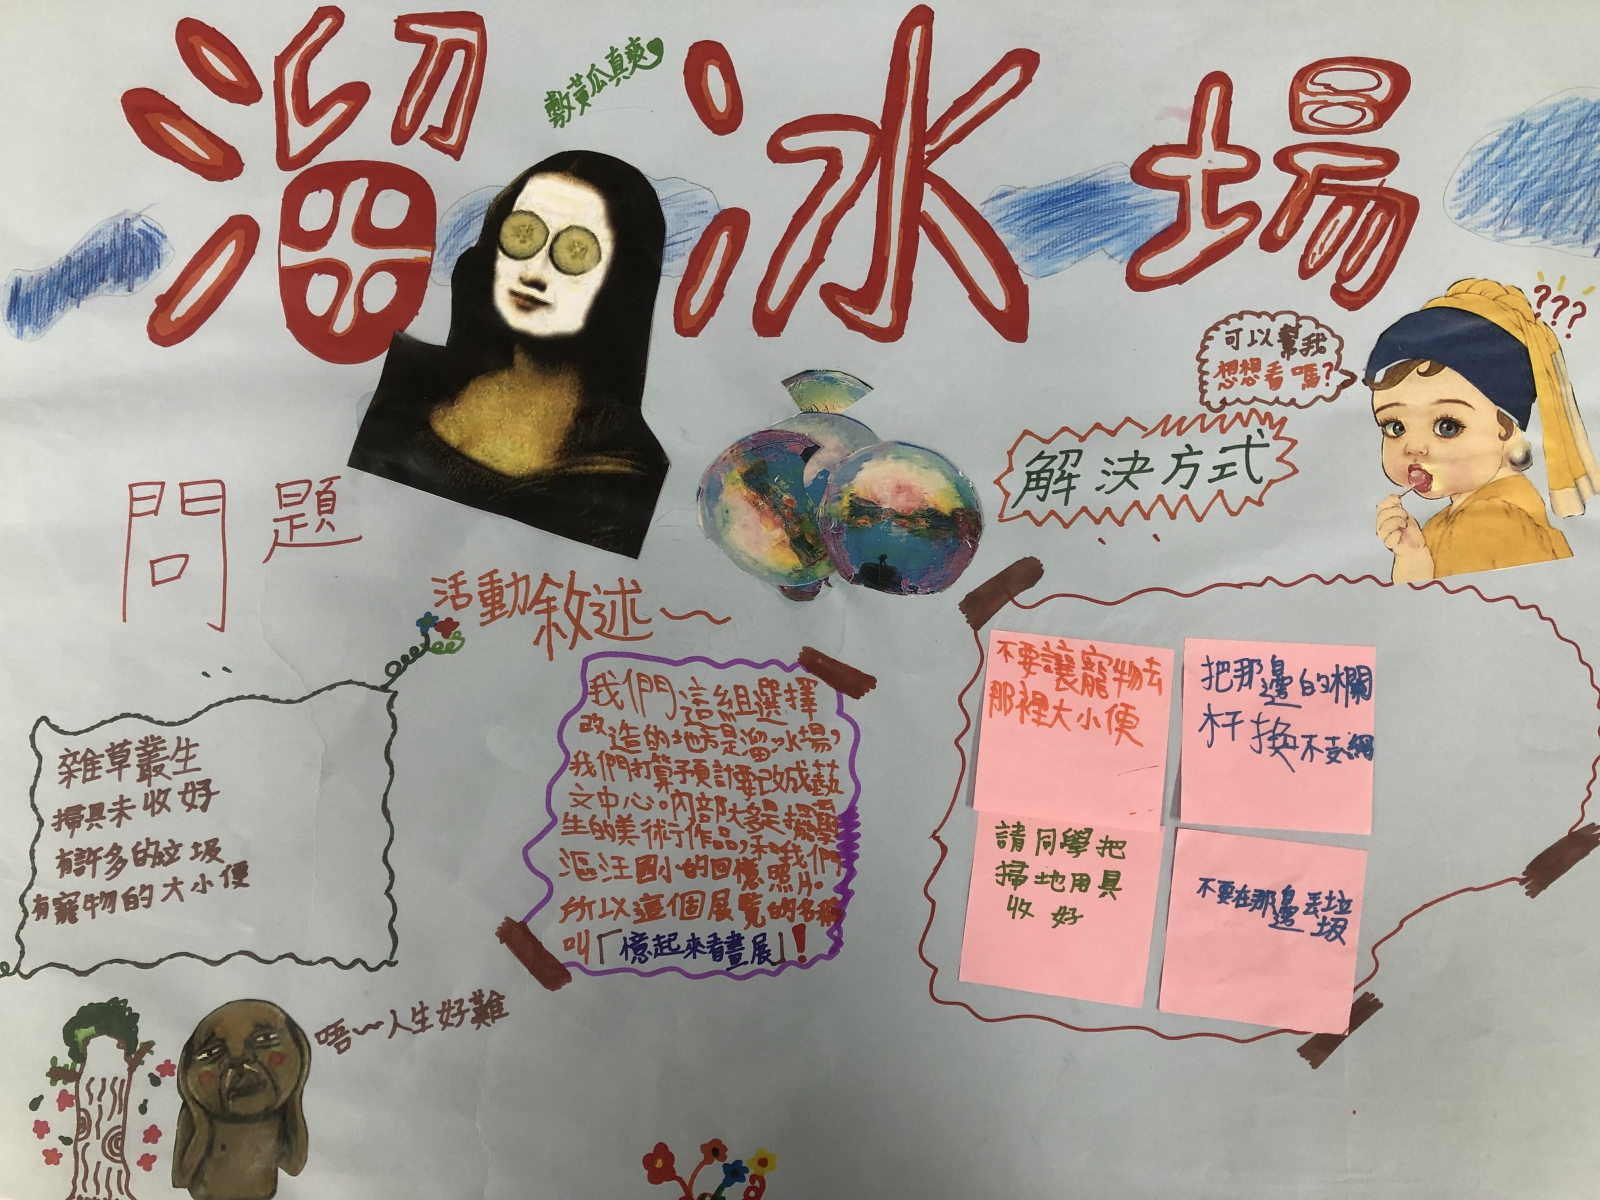 溜冰場
敷黃瓜真爽
可以幫我
想想看嗎?
???
解決方式
問題
活動敘述~
雜草叢生
掃具未收好
有許多的垃圾
有寵物的大小便
我們這組選擇
改造的地方是溜冰場,
我們打算予預計要改成藝
文中心。內部大多是擺奧
生的美術行作品,和我們
漚汪國小的回憶照片。
所以這個展覽的名稱
叫「憶起來看畫展」!
不要讓寵物去
那裡大小便
把那邊的欄
杆換
請同學把
掃地用具
收好
不要在那邊丟垃
圾
唔~人生好難